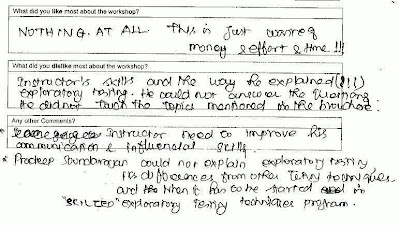 What did you like most about the workshop?
NOTHING. AT ALL This is just waste of
money & effort & time !!!
What did you dislike most about the workshop?
Instructor's skills and the way he explained(!!!)
exploratory testing. He could not answer the questions
He did not touch the topics mentioned in the brochure.
Any other Comments?
Instructor need to improve his
communication & influencial skills.
* Pradeep Soundarajan could not explain exploratory testing
its differences from other Testing techniques
and the when it has to be started in
"SCRIPTED" exploratory testing techniques program.